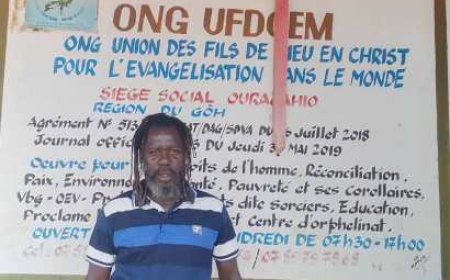 ONG UFDCEM
ONG UNION DES FILS DE DIEU EN CHRIST
POUR L'EVANGELISATION DANS LE MONDE
SIEGE SOCIAL OURAGAHIO
REGION DU GÔH
Agrément N° 513 AT/DAG/SDVA DU 6 Juillet 2018
Journal offi DU Jeudi 3 MAI 2019
Oeuvre pour its de l'homme, Réconciliation,
Paix, Environne té, Pauvreté et ses corollaires,
Vbg - OEV - P s dits sorciers, Education,
Proclame et Centre d'orphelinat.
OUVERT VENDREDI DE 07h30 - 17h00